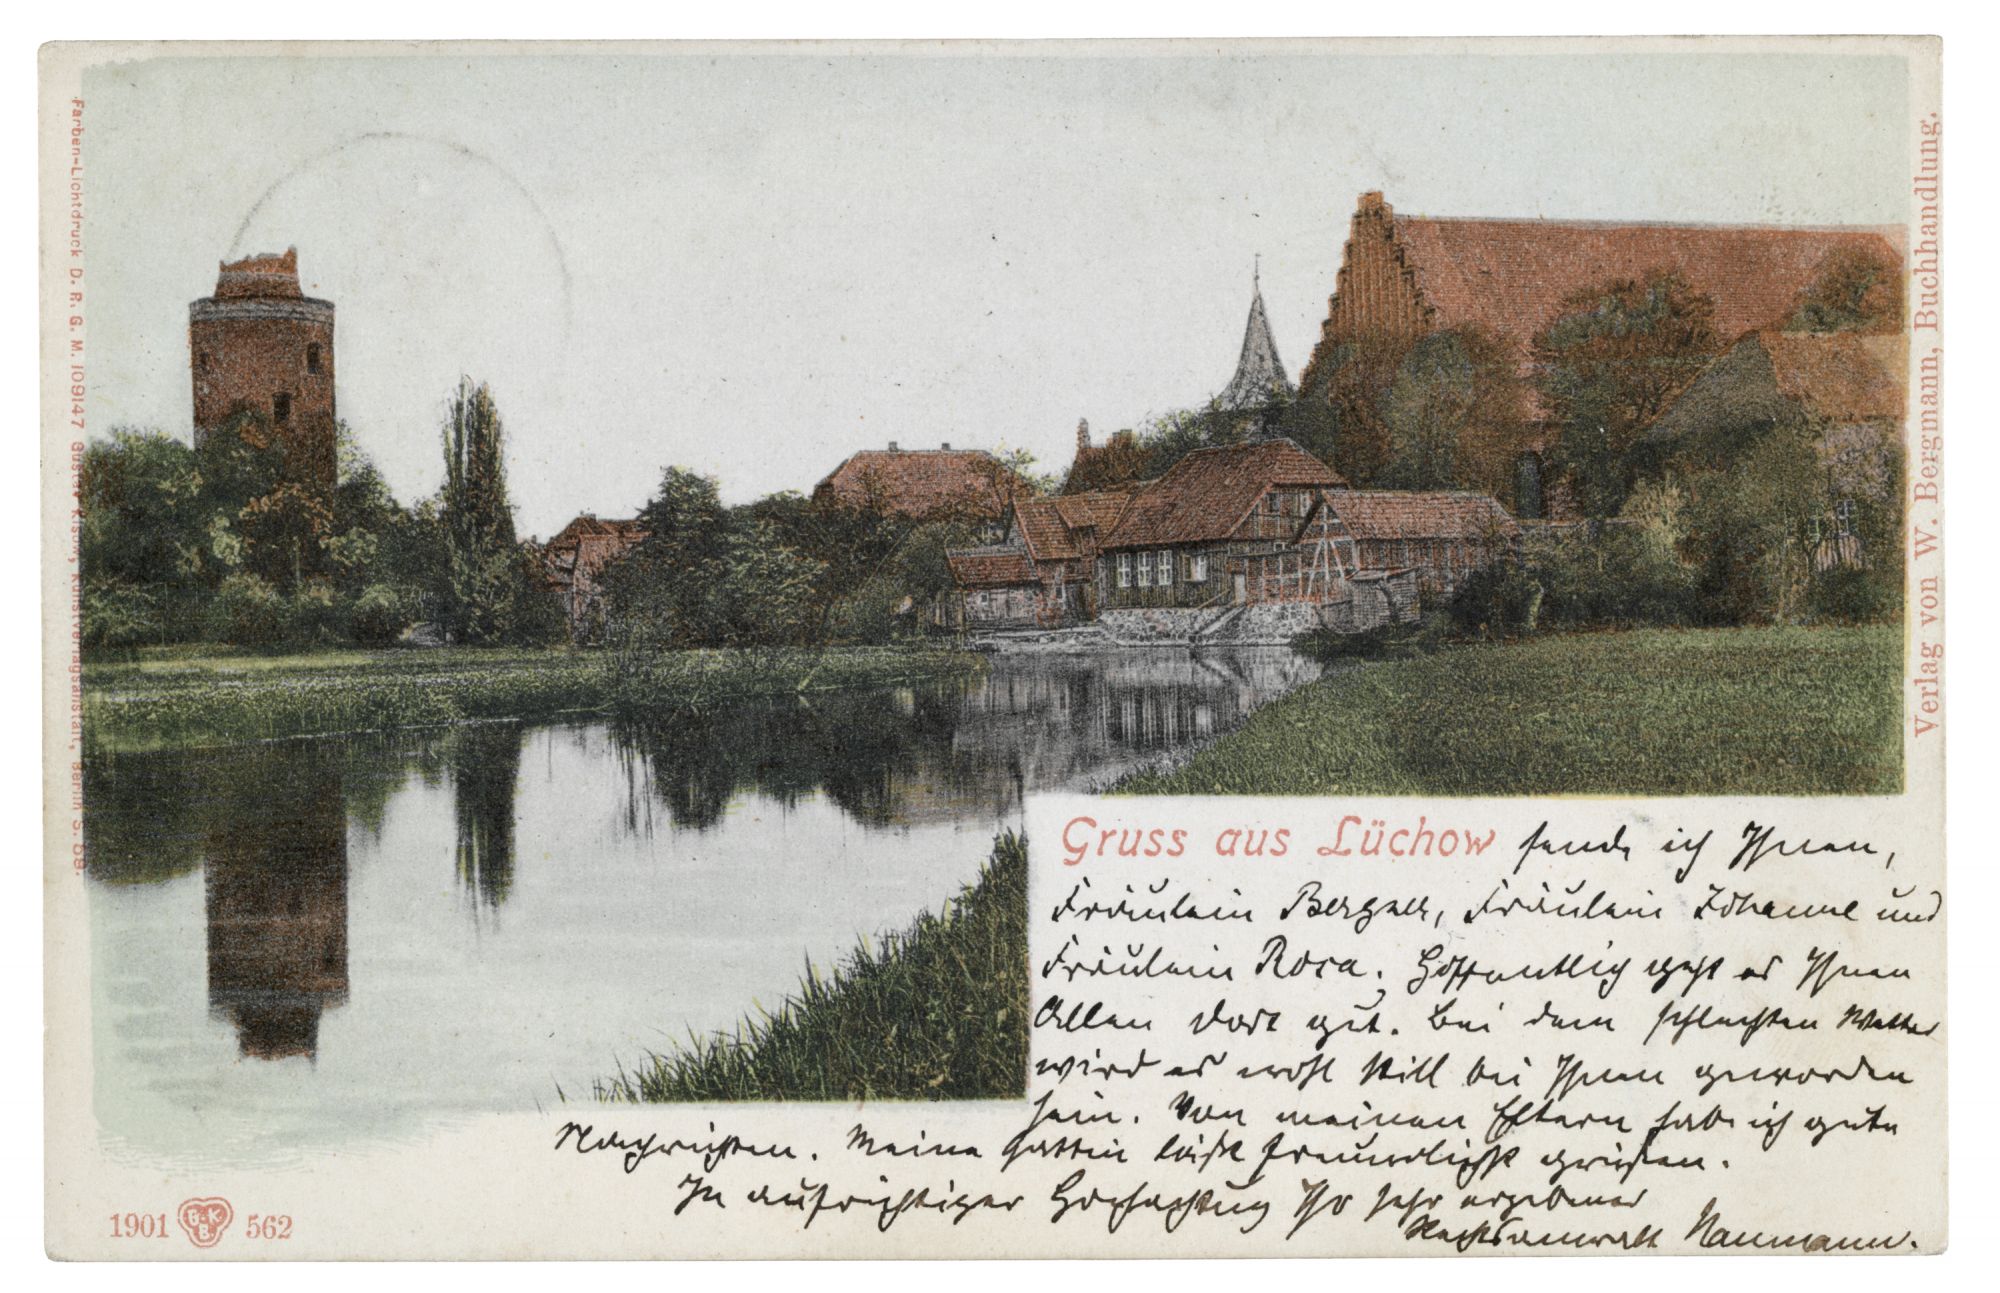 Farben-Lichtdruck D. R. G. M. 109147 Gustav Kistow, Kunstverlagsanstalt, Berlin S. 59.
Verlag von W. Bergmann, Buchhandlung.
Gruss aus Lüchow sende ich Ihnen,
Fräulein Bergner, Fräulein Johanne und
Fräulein Rosa. Hoffentlich geht es Ihnen
Allen dort gut. Bei dem schlechten Wetter
wird es wohl still bei Ihnen geworden
sein. Von meinen Eltern habe ich gute
Nachrichten. Meine Gattin läßt freundlichst grüßen.
In aufrichtiger Hochachtung Ihr sehr ergebener
Rechtsanwalt Naumann.
1901 G.K.B. 562